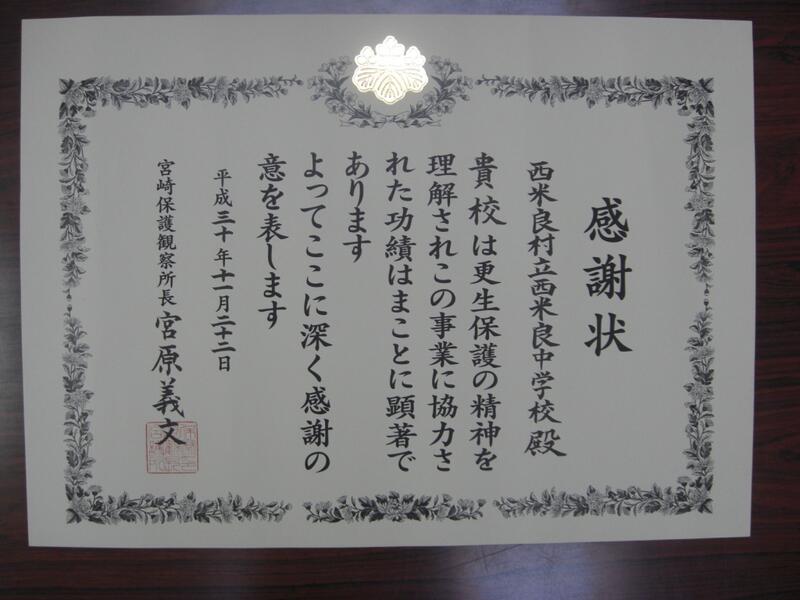 感謝状
西米良村立西米良中学校殿
貴校は更生保護の精神を
理解されこの事業に協力さ
れた功績はまことに顕著で
あります
よってここに深く感謝の
意を表します
平成三十年十一月二十二日
宮崎保護観察所長 宮原義文